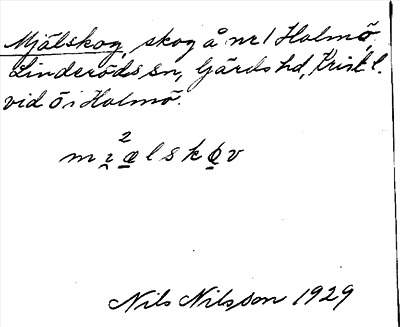 Mjälskog, skog å nr 1 Holmö,
Linderöds sn, Gärds hd, Krist. l.
vid Ö i Holmö.
2
mi̯æ̱lsko̱v
Nils Nilsson 1929